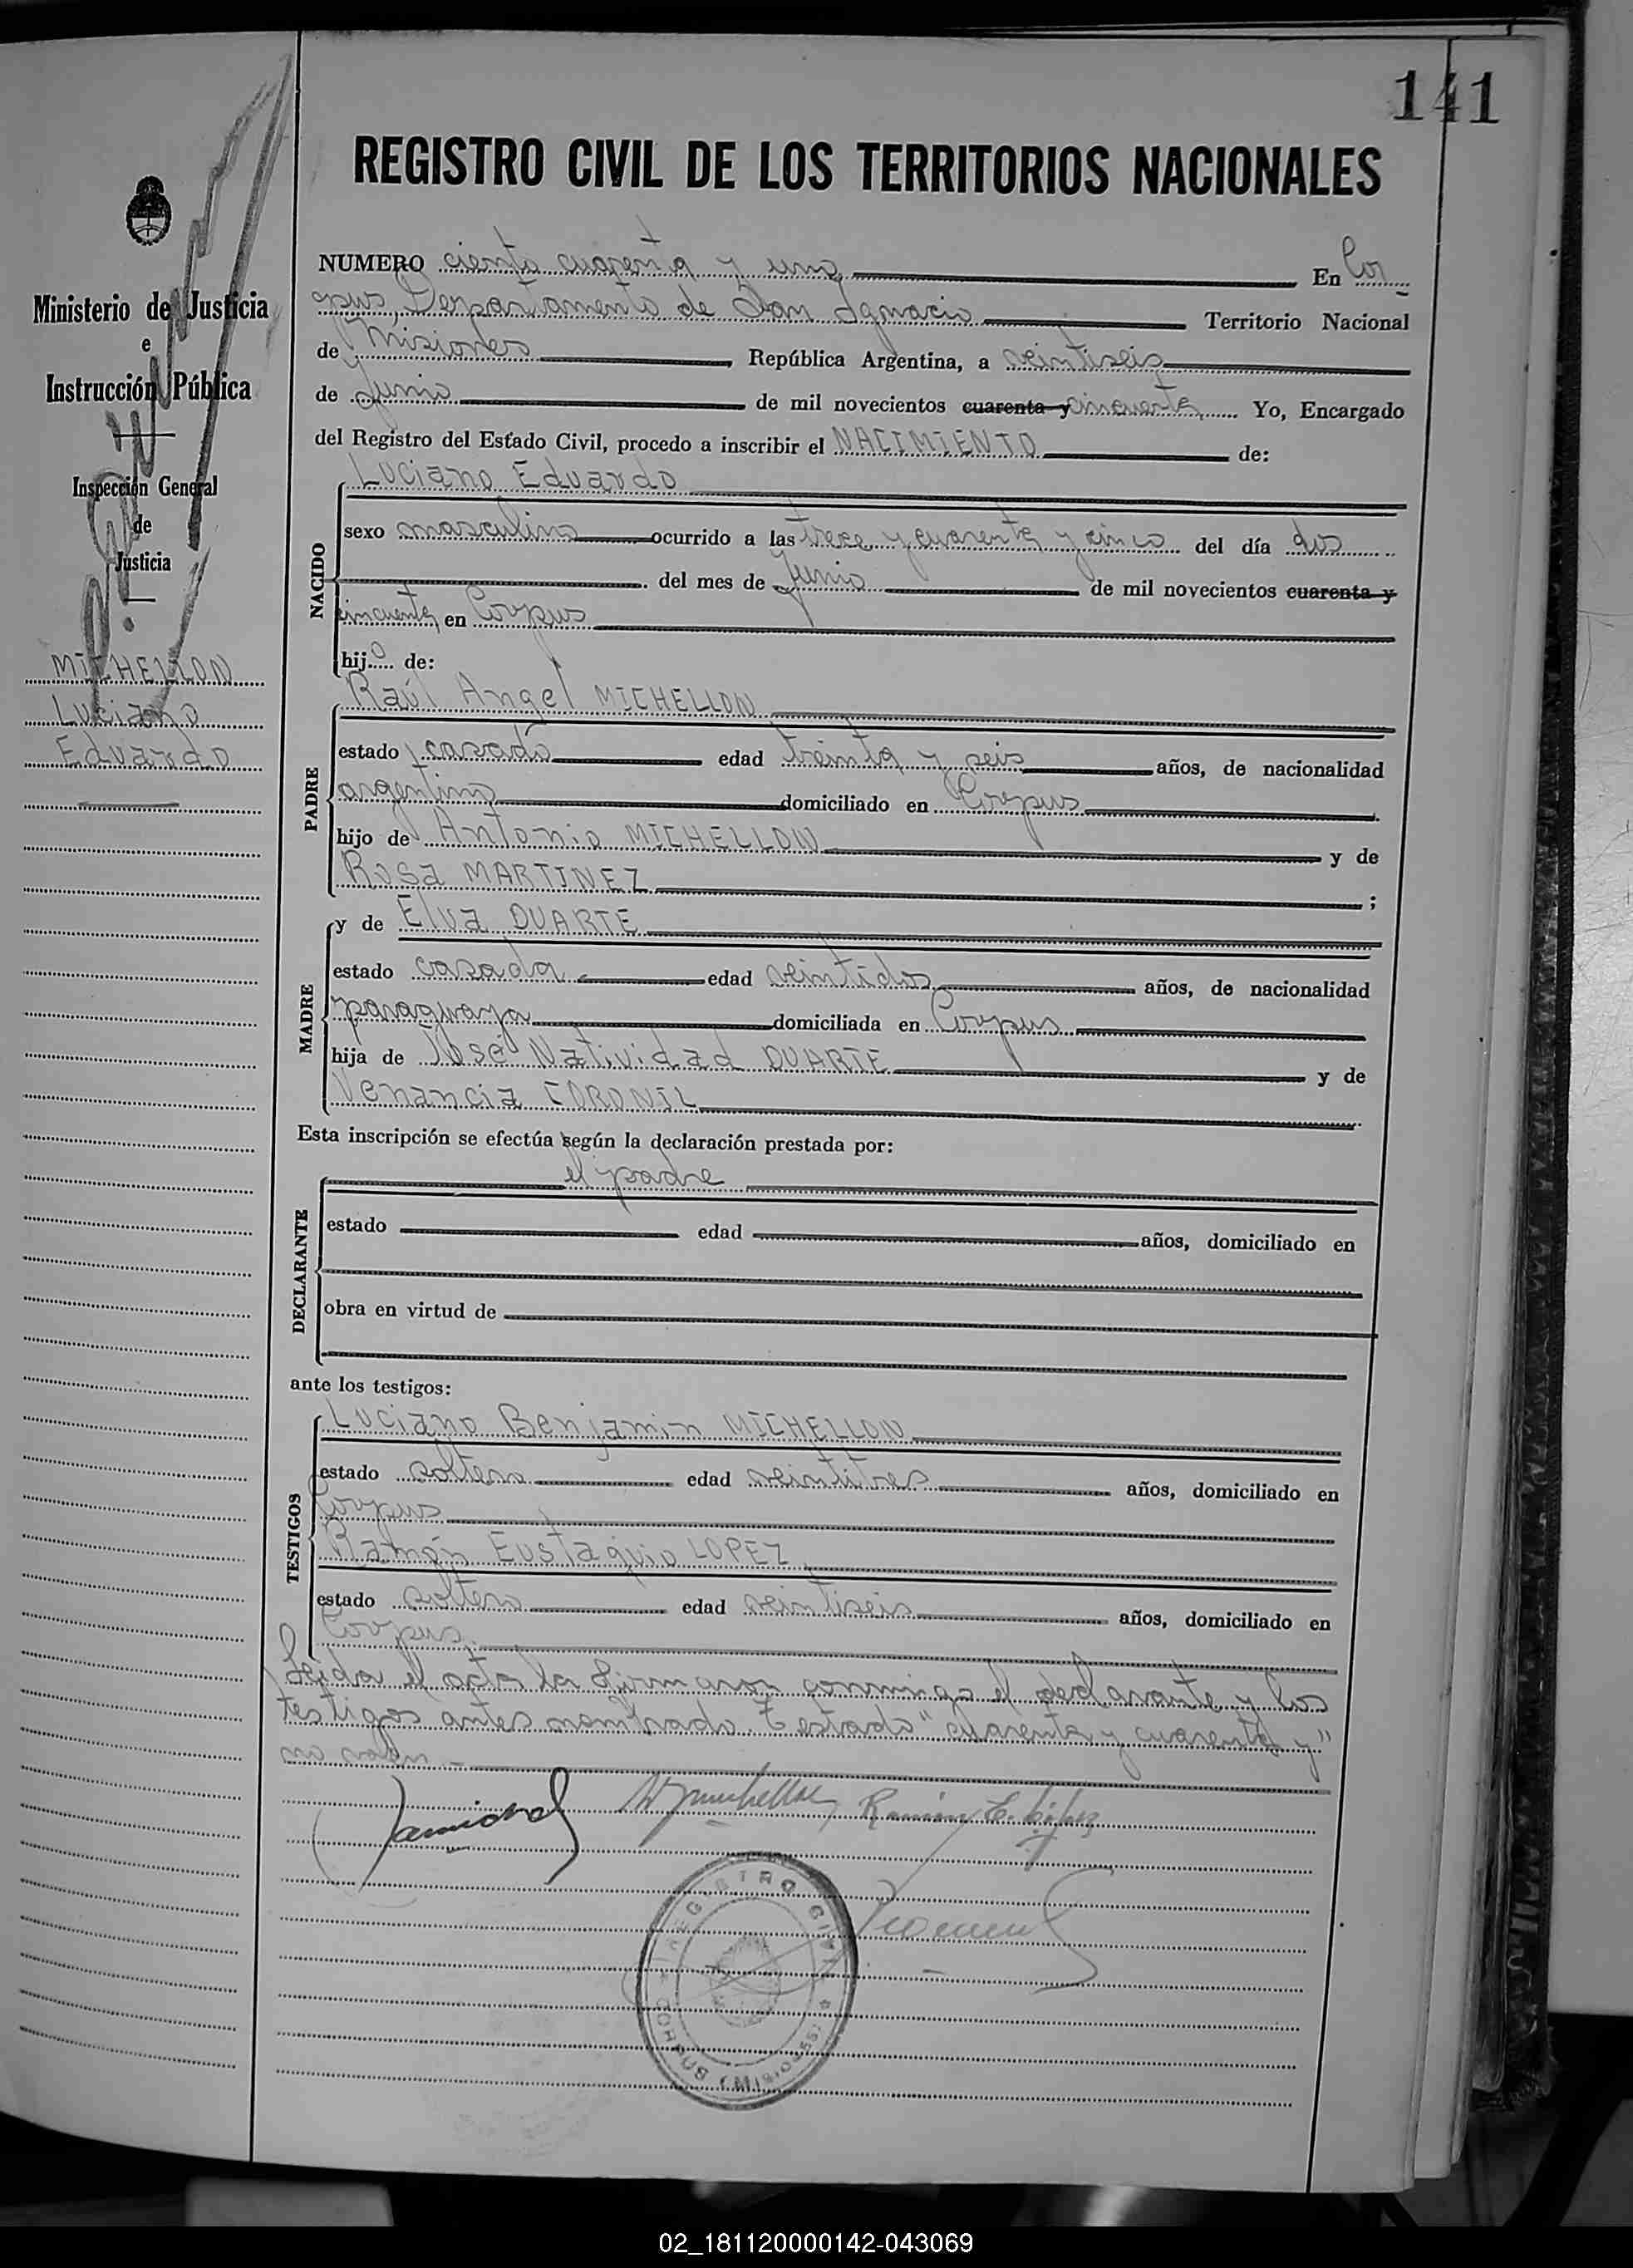 141
REGISTRO CIVIL DE LOS TERRITORIOS NACIONALES
Ministerio de Justicia
e
Instrucción Pública
Inspección General
de
Justicia
MICHELLON
Luciano
Eduardo
NUMERO ciento cuarenta y uno En Cor
pus, Departamento de San Ignacio Territorio Nacional
de Misiones, República Argentina, a veintiseis
de Junio de mil novecientos cuarenta y cincuenta Yo, Encargado
del Registro del Estado Civil, procedo a inscribir el NACIMIENTO de:
NACIDO
Luciano Eduardo
sexo masculino ocurrido a las trece y cuarenta y cinco del día dos
del mes de Junio de mil novecientos cuarenta y
cincuenta en Corpus
hijo de:
PADRE
Raúl Angel MICHELLON
estado casado edad treinta y seis años, de nacionalidad
argentino domiciliado en Corpus
hijo de Antonio MICHELLON y de
Rosa MARTINEZ ;
MADRE
y de Elva DUARTE
estado casada edad veintidos años, de nacionalidad
paraguaya domiciliada en Corpus
hija de José Natividad DUARTE y de
Venancia CORONIL
Esta inscripción se efectúa según la declaración prestada por:
DECLARANTE
el padre
estado edad años, domiciliado en
obra en virtud de
ante los testigos:
TESTIGOS
Luciano Benjamin MICHELLON
estado soltero edad veintitres años, domiciliado en
Corpus
Ramón Eustaquio LOPEZ
estado soltero edad veintiseis años, domiciliado en
Corpus.
Leida el acta la firmaron conmigo el declarante y los
testigos antes nombrado. Testado "cuarenta y cuarenta y"
no valen.
Ramón E. López
REGISTRO CIVIL
CORPUS (Misiones)
02_181120000142-043069